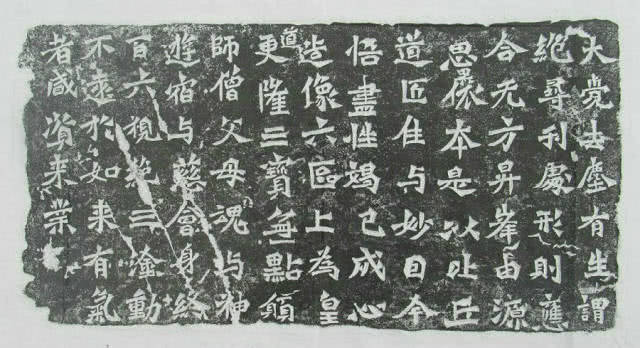 大覺去塵有生謂
絕尋刹處形則應
合无方昇峯由源
思懷本是以比丘
道匠住与妙因今
悟盡性竭己成心
造像六區上為皇
道更隆三寶無點願
師僧父母魂与神
遊宿与慈會身終
百六視絕三塗動
不遠於如来有氣
者咸資来業